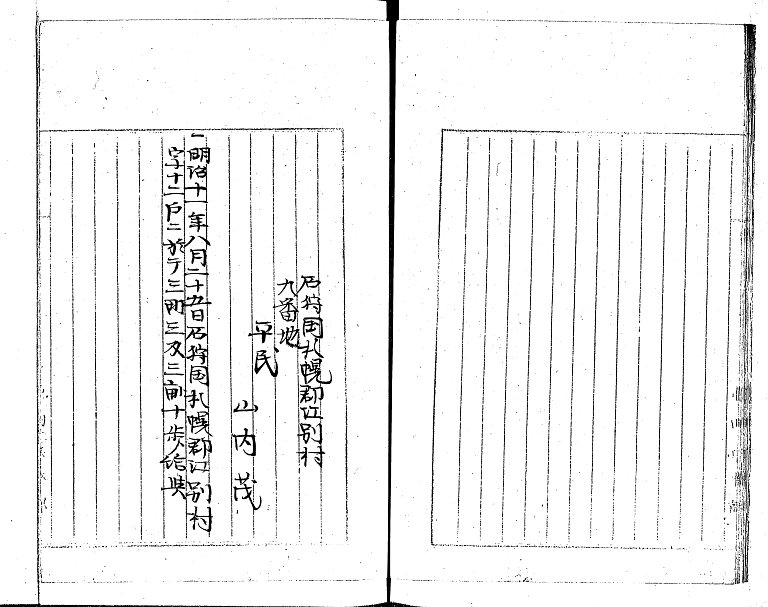 石狩国札幌郡江別村
九番地
平民
山内茂
一明治十一年八月二十五日石狩国札幌郡江別村
字十二戸ニ於テ三町三反三畝十歩給與